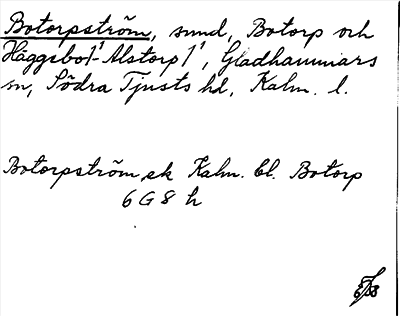 Botorpström, sund, Botorp och
Häggebo 1¹-Alstorp 1¹, Gladhammars
sn, Södra Tjusts hd, Kalm. l.
Botorpström ek Kalm. bl. Botorp
6 G 8 h